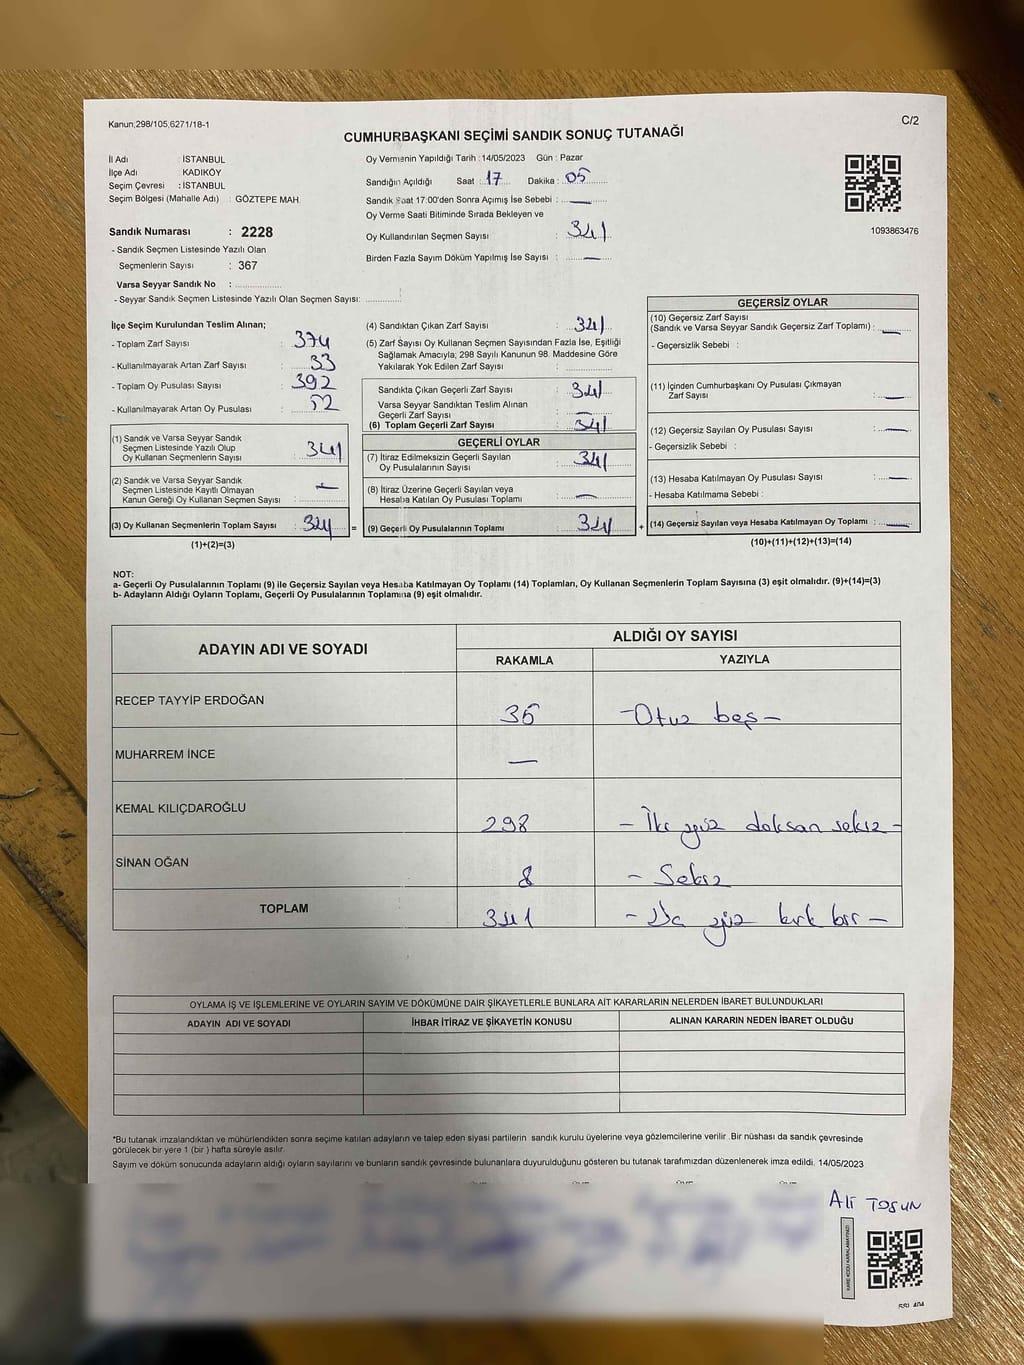 Kanun;298/105,6271/18-1
C/2
CUMHURBAŞKANI SEÇİMİ SANDIK SONUÇ TUTANAĞI
İl Adı : İSTANBUL
İlçe Adı : KADIKÖY
Seçim Çevresi : İSTANBUL
Seçim Bölgesi (Mahalle Adı) : GÖZTEPE MAH.
Sandık Numarası : 2228
- Sandık Seçmen Listesinde Yazılı Olan
Seçmenlerin Sayısı : 367
Varsa Seyyar Sandık No :
- Seyyar Sandık Seçmen Listesinde Yazılı Olan Seçmen Sayısı:
Oy Vermenin Yapıldığı Tarih : 14/05/2023 Gün : Pazar
Sandığın Açıldığı Saat : 17 Dakika : 05
Sandık Saat 17:00'den Sonra Açımış İse Sebebi : —
Oy Verme Saati Bitiminde Sırada Bekleyen ve
Oy Kullandırılan Seçmen Sayısı : 341
Birden Fazla Sayım Döküm Yapılmış İse Sayısı : —
1093863476
İlçe Seçim Kurulundan Teslim Alınan;
- Toplam Zarf Sayısı : 374
- Kullanılmayarak Artan Zarf Sayısı : 33
- Toplam Oy Pusulası Sayısı : 392
- Kullanılmayarak Artan Oy Pusulası : 52
(1) Sandık ve Varsa Seyyar Sandık
Seçmen Listesinde Yazılı Olup
Oy Kullanan Seçmenlerin Sayısı : 341
(2) Sandık ve Varsa Seyyar Sandık
Seçmen Listesinde Kayıtlı Olmayan
Kanun Gereği Oy Kullanan Seçmen Sayısı : —
(3) Oy Kullanan Seçmenlerin Toplam Sayısı : 341 =
(1)+(2)=(3)
(4) Sandıktan Çıkan Zarf Sayısı : 341
(5) Zarf Sayısı Oy Kullanan Seçmen Sayısından Fazla İse, Eşitliği
Sağlamak Amacıyla; 298 Sayılı Kanunun 98. Maddesine Göre
Yakılarak Yok Edilen Zarf Sayısı :
Sandıkta Çıkan Geçerli Zarf Sayısı : 341
Varsa Seyyar Sandıktan Teslim Alınan
Geçerli Zarf Sayısı : —
(6) Toplam Geçerli Zarf Sayısı : 341
GEÇERLİ OYLAR
(7) İtiraz Edilmeksizin Geçerli Sayılan
Oy Pusulalarının Sayısı : 341
(8) İtiraz Üzerine Geçerli Sayılan veya
Hesaba Katılan Oy Pusulası Toplamı : —
(9) Geçerli Oy Pusulalarının Toplamı : 341 +
GEÇERSİZ OYLAR
(10) Geçersiz Zarf Sayısı
(Sandık ve Varsa Seyyar Sandık Geçersiz Zarf Toplamı) : —
- Geçersizlik Sebebi :
(11) İçinden Cumhurbaşkanı Oy Pusulası Çıkmayan
Zarf Sayısı : —
(12) Geçersiz Sayılan Oy Pusulası Sayısı : —
- Geçersizlik Sebebi :
(13) Hesaba Katılmayan Oy Pusulası Sayısı : —
- Hesaba Katılmama Sebebi :
(14) Geçersiz Sayılan veya Hesaba Katılmayan Oy Toplamı : —
(10)+(11)+(12)+(13)=(14)
NOT:
a- Geçerli Oy Pusulalarının Toplamı (9) ile Geçersiz Sayılan veya Hesaba Katılmayan Oy Toplamı (14) Toplamları, Oy Kullanan Seçmenlerin Toplam Sayısına (3) eşit olmalıdır. (9)+(14)=(3)
b- Adayların Aldığı Oyların Toplamı, Geçerli Oy Pusulalarının Toplamına (9) eşit olmalıdır.
ADAYIN ADI VE SOYADI ALDIĞI OY SAYISI
RAKAMLA YAZIYLA
RECEP TAYYİP ERDOĞAN 35 - Otuz beş -
MUHARREM İNCE —
KEMAL KILIÇDAROĞLU 298 - İki yüz doksan sekiz -
SİNAN OĞAN 8 - Sekiz
TOPLAM 341 - Üç yüz kırk bir -
OYLAMA İŞ VE İŞLEMLERİNE VE OYLARIN SAYIM VE DÖKÜMÜNE DAİR ŞİKAYETLERLE BUNLARA AİT KARARLARIN NELERDEN İBARET BULUNDUKLARI
ADAYIN ADI VE SOYADI İHBAR İTİRAZ VE ŞİKAYETİN KONUSU ALINAN KARARIN NEDEN İBARET OLDUĞU
*Bu tutanak imzalandıktan ve mühürlendikten sonra seçime katılan adayların ve talep eden siyasi partilerin sandık kurulu üyelerine veya gözlemcilerine verilir. Bir nüshası da sandık çevresinde
görülecek bir yere 1 (bir ) hafta süreyle asılır.
Sayım ve döküm sonucunda adayların aldığı oyların sayılarını ve bunların sandık çevresinde bulunanlara duyurulduğunu gösteren bu tutanak tarafımızdan düzenlenerek imza edildi. 14/05/2023
Ali TOSUN